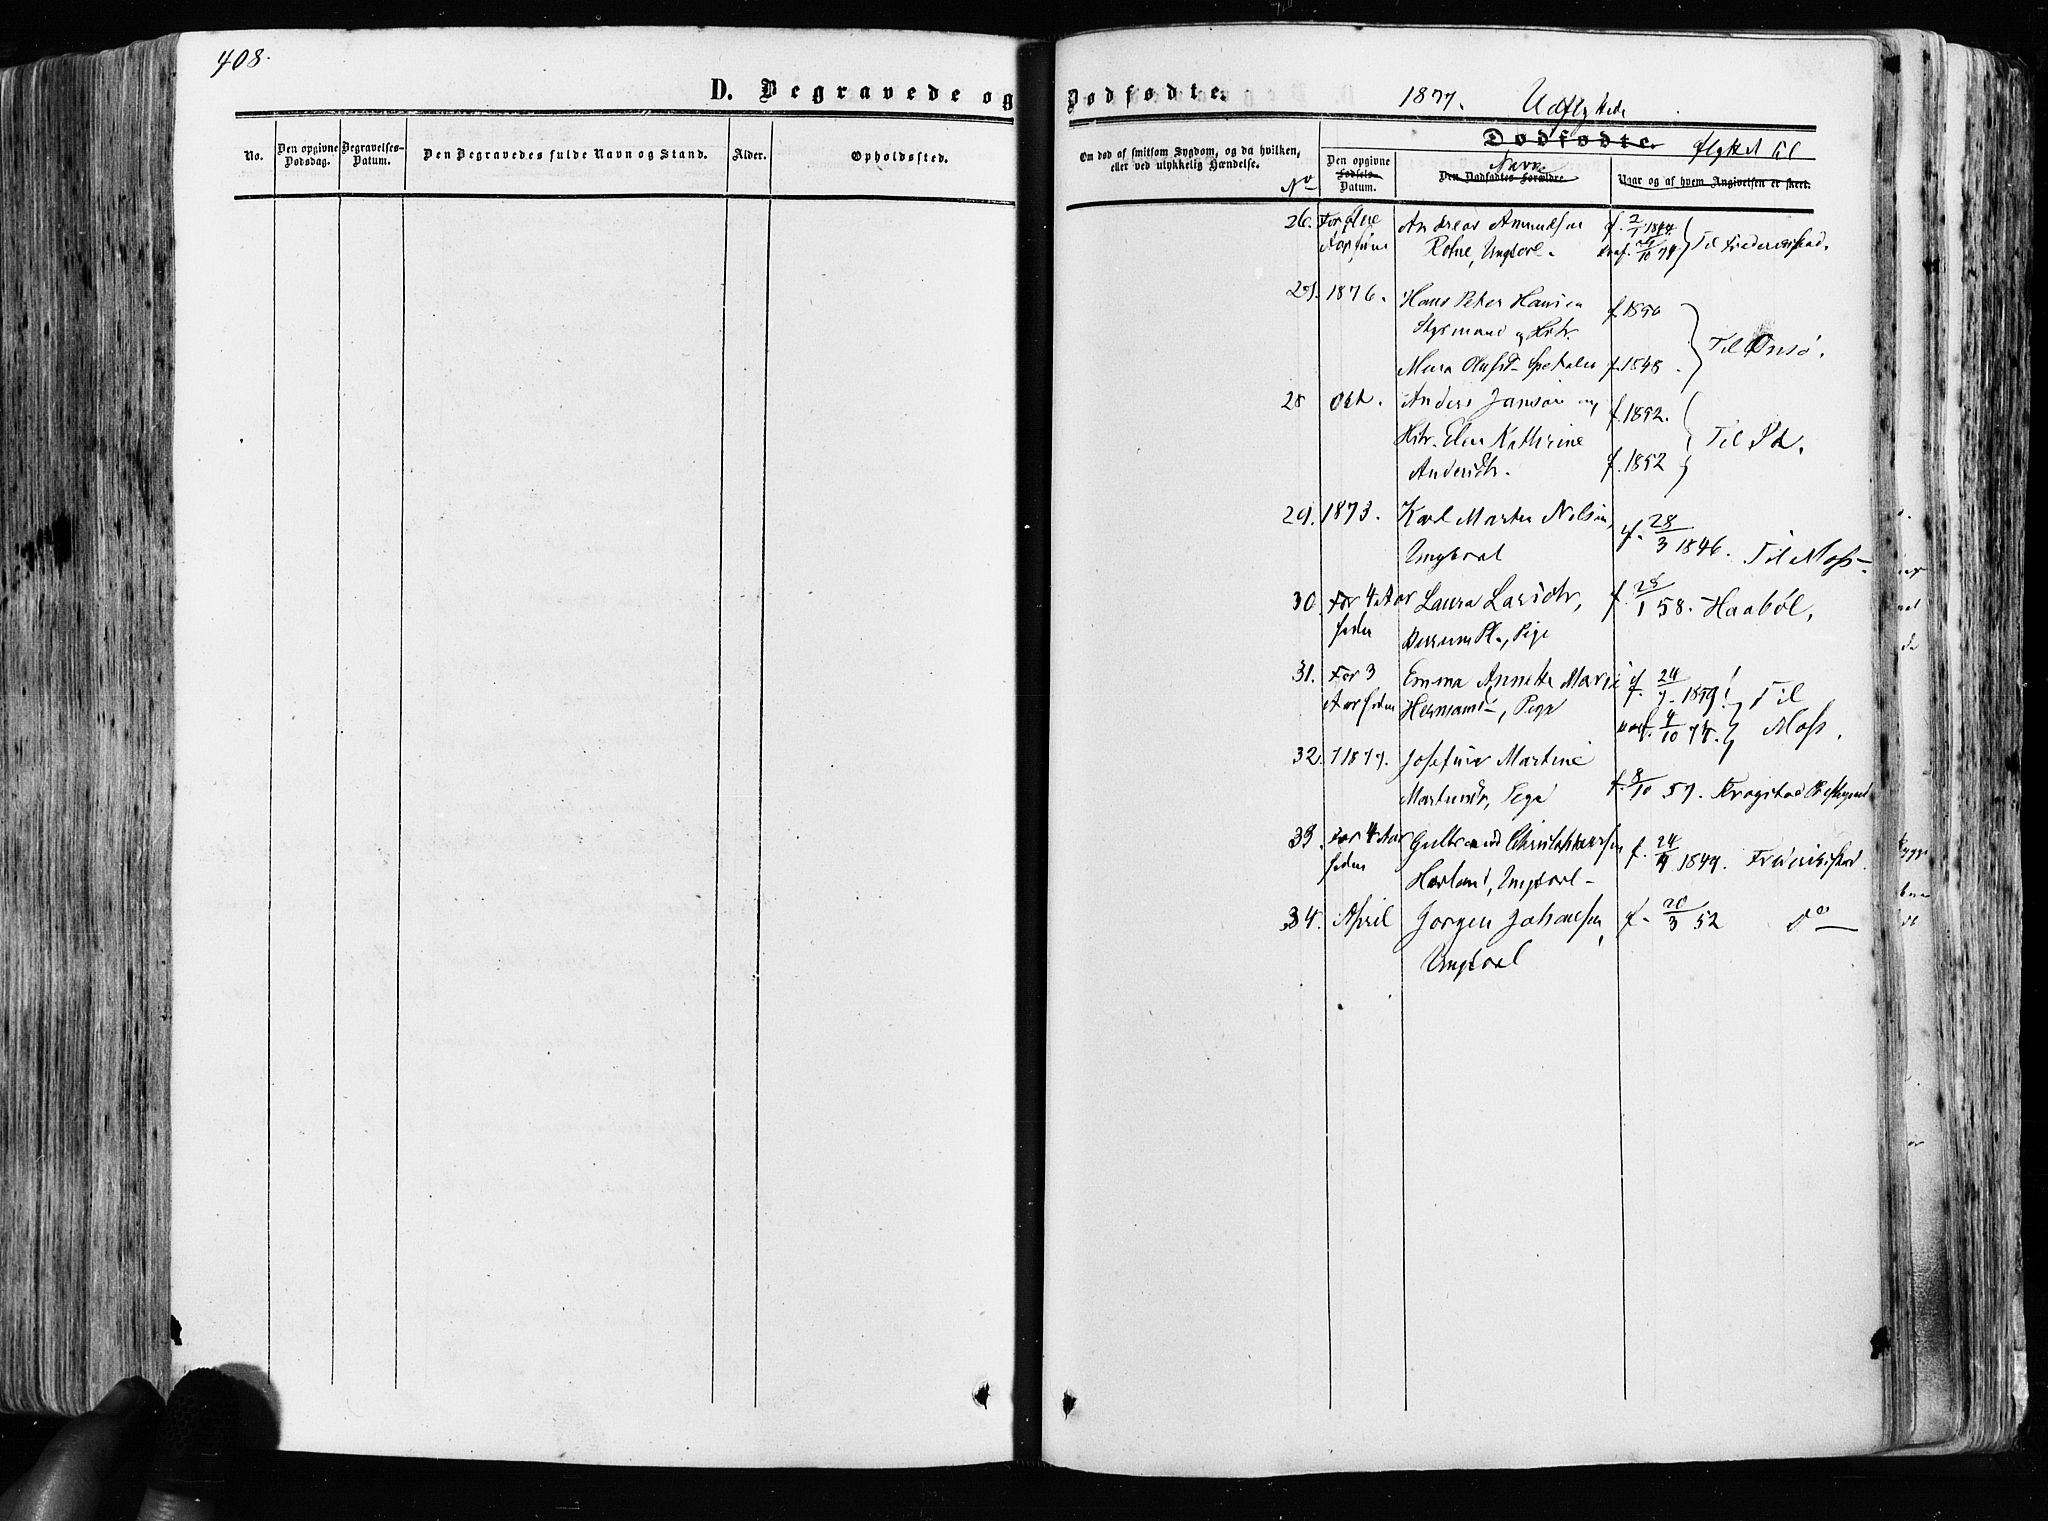 408.
D. Begravede og Dødfødte.
1877. Udflyttede
Dødfødte. flyttet til
No.
Den opgivne Dødsdag.
Begravelses-Datum.
Den Begravedes fulde Navn og Stand.
Alder.
Opholdssted.
Om død af smitsom Sygdom, og da hvilken,
eller ved ulykkelig Hændelse.
No
Den opgivne
Fødsels-
Datum.
Navn
Den Dødfødtes Forældre
Hvor og af hvem Angivelsen er skeet.
26. For flere Andreas Amundsen f. 2/1 1844
Aar siden Ungkarl. Til Frederikstad.
27. 1876. Hans Peter Hansen f. 1850
Styrmand og Hstr. Til Onsø.
f. 1848
28 Okt. Anders Jansen og f. 1852.
Hstr. Elen Kathrine Til Do.
Andersdtr. f. 1852
29. 1873. Karl Martin Nilsen, f. 28/3 1846. Til Moss
Ungkarl
30. For 4 Aar Laura Larsdtr, f. 28/1 58. Haabøl.
siden Pl., Pige
31. For 3 Emma Annette Marie f. 24/7 1859 Til
Aar siden Hermansd, Pige 4/10 74. Moss.
32. 1877. Josefine Martine
Martinsdtr, Pige f. 8/10 57. Krogstad Præstegjeld
33. For 4 Aar Gulbrand Christophersen f. 24/4 1849 Frederikstad.
siden Ungkarl
34. April Jørgen Johansen, f. 20/3 52 Do
Ungkarl